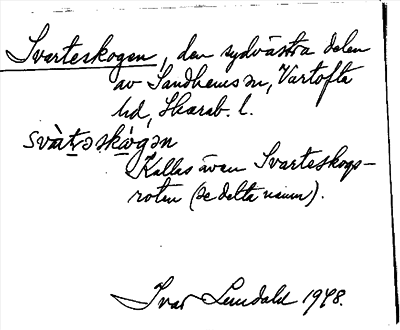 Svarteskogen, den sydvästra delen
av Sandhems sn, Vartofta
hd, Skarab. l.
svàt̠əskȧ̀gən
Kallas även Svarteskogs-
roten (se detta namn).
Ivar Lundahl 1948.